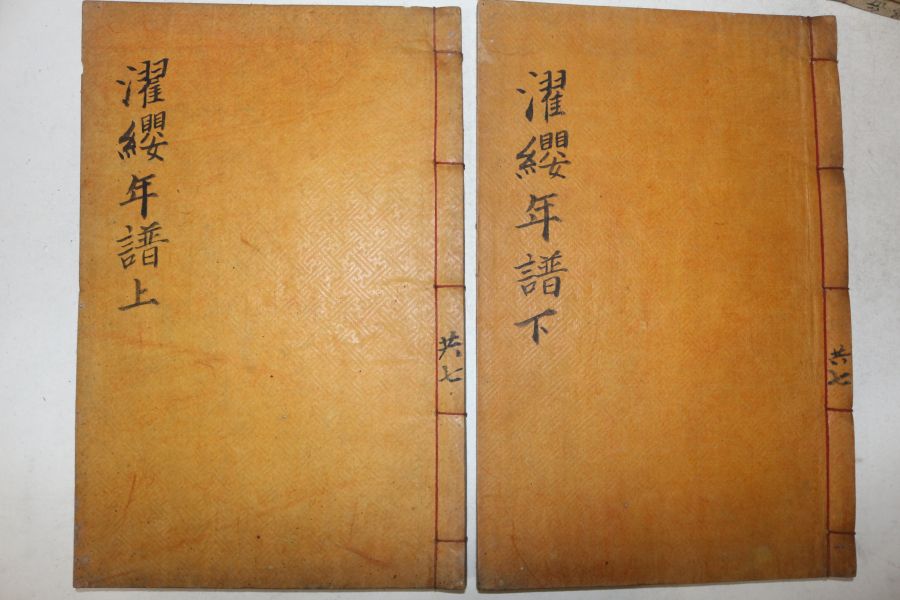 濯纓年譜上
共七
濯纓年譜下
共七